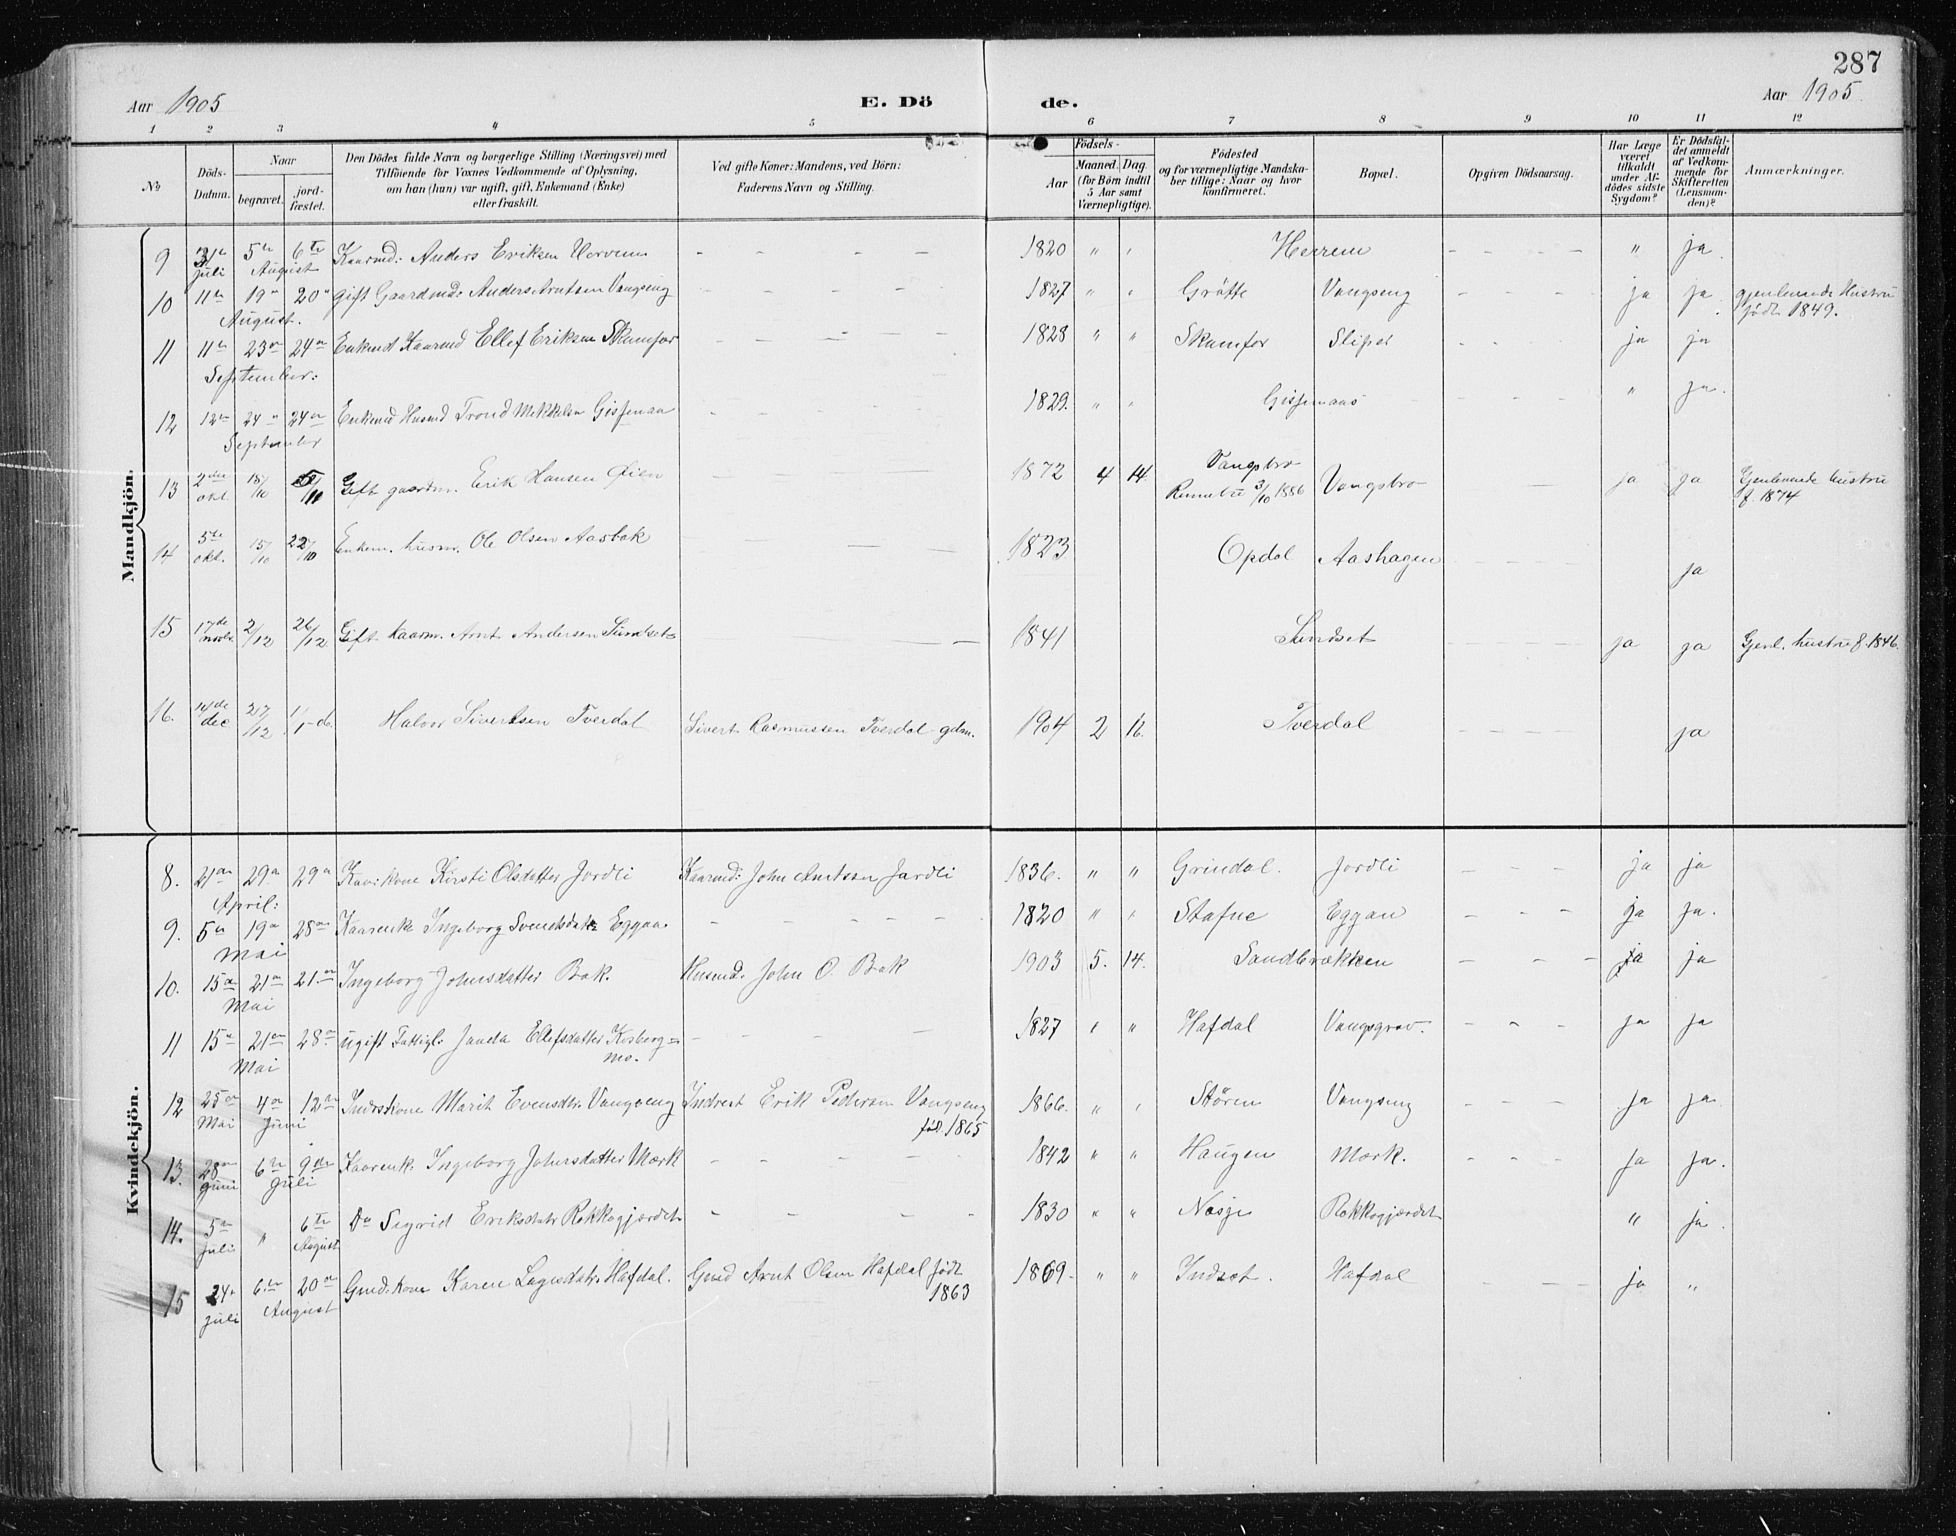 287
Aar 1905
E. Dö
de.
Aar 1905.
1 2 3 4 5 6 7 8 9 10 11 12
No
Döds-Datum.
Naar
begravet.
jord-fæstet.
Den Dödes fulde Navn og borgerlige Stilling (Næringsvei) med
Tilföiende för Voxnes Vedkommende af Oplysning,
om han (hun) var ugift, gift, Enkemand (Enke)
eller fraskilt.
Ved gifte Koner: Mandens, ved Börn:
Faderens Navn og Stilling.
Födsels-
Aar
Maaned. Dag
(for Börn indtil
5 Aar samt
Værnepligtige).
Födested
og for værnepligtige Mandska-
ber tillige: Naar og hvor
konfirmeret.
Bopæl.
Opgiven Dödsaarsag.
Har Læge
været
tilkaldt
under Af-
dödes sidste
Sygdom?
Er Dödsfal-
det anmeldt
af Vedkom-
mende for
Skifteretten
(Lensman-
den)?
Anmærkninger.
Mandkjön.
9 31te juli 5te 6te August Kaarmd: Anders Eriksen - - - - 1820 " " Herrem - - - - " ja.
10 11te 19de 20de August. gift Gaardmd: Anders Arntsen Vangseng - - - - 1827 " " Grötte Vangseng - - - - ja ja. gjenlevende Hustru
födt 1849.
11 11te 23de 24de September: Enkemd Kaarmd Ellef Eriksen Skamfer - - - - 1828 " " Skamfer Slipet - - - - ja ja
12 12te 24de 24de September Enkemd Husmd Trond Mikkelsen Gissenaa - - - - 1829. " " Gissenaas - - - " ja.
13 2den okt. 18/10 5/11 Gift gaardm. Erik Hansen Öien - - - 1872 4 14 Vangsbro
Rennebu 3/10 1886 Vangsbro - - ja ja Gjenlevende hustru
f. 1874
14 5te okt. 15/10 22/10 Enkem. husm. Ole Olsen Aasbak - - - 1823 Opdal Aashagen - - - - ja
15 17de novbr. 2/12 26/12 Gift kaarm. Arnt Andersen Sundset - - 1841 Sundset - - - - ja ja Gjenl. hustru f. 1846.
16. 14de dec 27/12 1/1-06. Halvor Sivertsen Tverdal Sivert Rasmussen Tverdal gdm. 1904 2 16. Tverdal - - - - ja
Kvindekjön.
8. 21de 29de 29de April: Kaarkone Kirsti Olsdatter Jordli Kaarmd: John Arntsen Jordli 1836. " " Grindal. Jordli - - - ja ja
9. 5te 19de 28de Mai Kaarenke Ingeborg Svendsdatr Eggaa. - - - - 1820 " " Stafne Eggan - - - ja ja.
10. 15de 21de 21de Mai Ingeborg Johnsdatter Bak. Husmd. John O. Bak 1903 5. 14. Sandbrækken - - - ja ja
11 15de 21de 28de Mai ugift Fattigl. Ellefsdatter Kosberg=
mo. - - - 1827 " " Hafdal Vangsgrav. - - - ja ja
12 25de Mai 4de 12te Juni Indrstkone Marit Evensdtr. Vangseng Indrest Erik Pedersen Vangseng
föd 1865 1866. " " Stören Vangseng - - - ja ja.
13. 28de Juni 6te 9de Juli Kaarenk. Ingeborg Johnsdatter Mærk - - - - 1842 " " Haugen Mærk. - - - ja ja.
14. 5te Juli " 6te August Do Sigrid Eriksdatr Rokkogjærdet - - - - 1830 " " Næsje Rokkogjærdet " ja.
15 24de juli 6te 20de August Gmd: kone Karen Lagesdatr. Hafdal. Gmd Arnt Olsen Hafdal födt
1863 1869. " " Indset. Hafdal - - - ja "